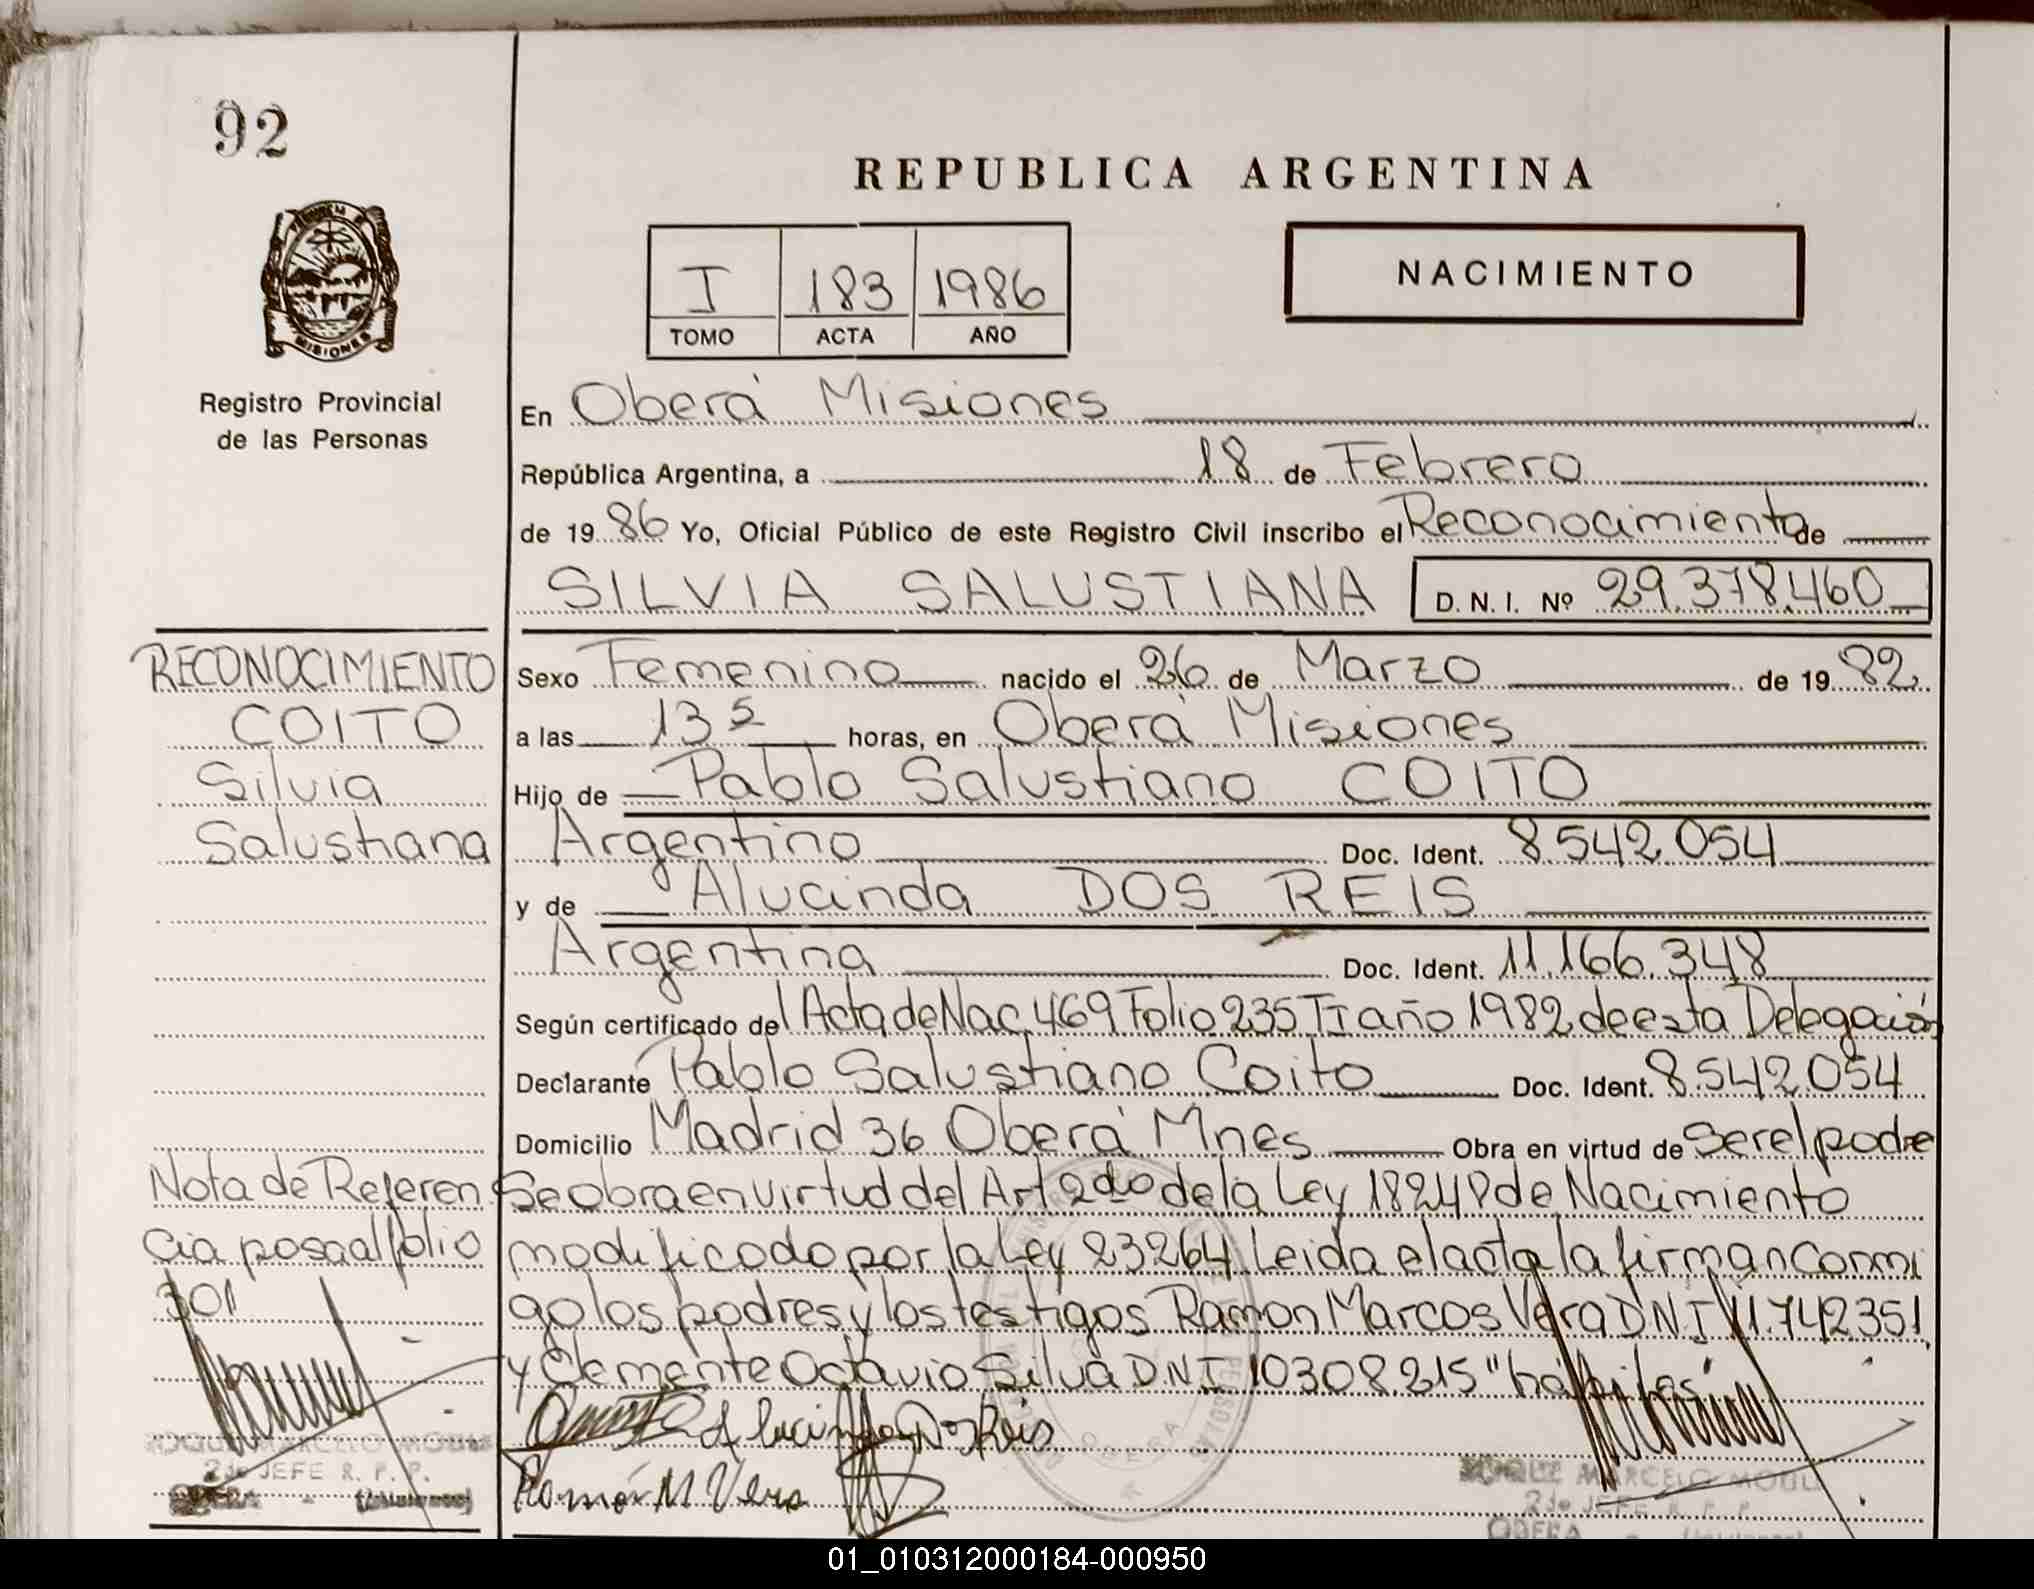 92
REPUBLICA ARGENTINA
I 183 1986
TOMO ACTA AÑO
NACIMIENTO
MISIONES
Registro Provincial
de las Personas
En Oberá Misiones
República Argentina, a 18 de Febrero
de 1986 Yo, Oficial Público de este Registro Civil inscribo el Reconocimiento de
SILVIA SALUSTIANA D. N. I. Nº 29.378.460
RECONOCIMIENTO
COITO
Silvia
Salustiana
Sexo Femenino nacido el 26 de Marzo de 1982
a las 13 5 horas, en Oberá Misiones
Hijo de Pablo Salustiano COITO
Argentino Doc. Ident. 8.542.054
y de Alucinda DOS REIS
Argentina Doc. Ident. 11.166.348
Según certificado del Acta de Nac. 469 Folio 235 TI año 1982 de esta Delegación
Declarante Pablo Salustiano Coito Doc. Ident. 8.542.054
Domicilio Madrid 36 Oberá Mnes Obra en virtud de Ser el padre
Se obra en virtud del Art 2do de la Ley 18248 de Nacimiento
modificado por la Ley 23264 Leida el acta la firman conmi
go los padres y los testigos Ramon Marcos Vera DNI 11.742351
y Clemente Octavio Silva D.N.I. 10308.215
Nota de Referen
cia pasa al folio
301
Alucinda Dos Reis
Ramón M Vera
ROQUE MARCELO
2do JEFE R. P. P.
OBERA
ROQUE MARCELO
2do JEFE R. P. P.
OBERA
01_010312000184-000950